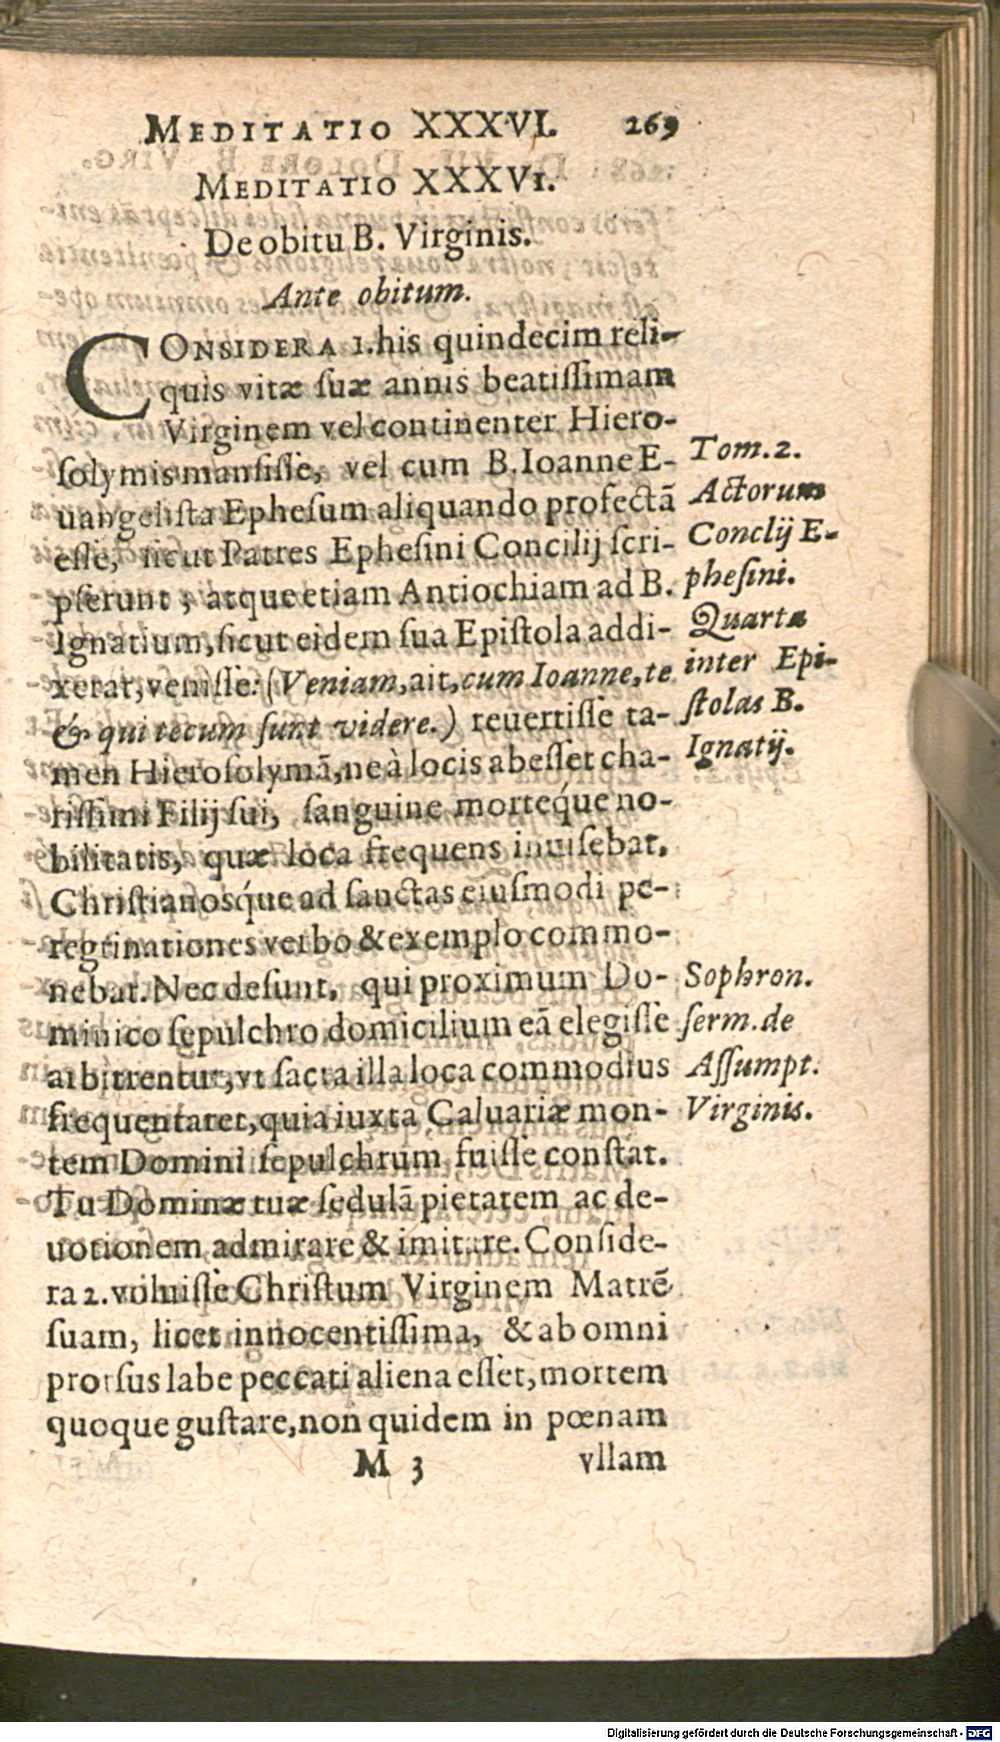 MEDITATIO XXXVI. 269
MEDITATIO XXXVI.
De obitu B. Virginis.
Ante obitum.
CONSIDERA 1. his quindecim reli-
quis vitæ ſuæ annis beatiſſimam
Virginem vel continenter Hiero-
ſolymis manſiſſe, vel cum B. Ioanne E-
uangeliſta Epheſum aliquando profectā
eſſe, ſicut Patres Epheſini Concilij ſcri-
pſerunt; atque etiam Antiochiam ad B.
Ignatium, ſicut eidem ſua Epiſtola addi-
xerat, veniſſe: (Veniam, ait, cum Ioanne, te
& qui tecum ſunt videre.) reuertiſſe ta-
men Hieroſolymā, ne à locis abeſſet cha-
riſſimi Filij ſui, ſanguine mortéque no-
bilitatis, quæ loca frequens inuiſebat.
Chriſtianosque ad ſanctas eiuſmodi pe-
regrinationes verbo & exemplo commo-
nebat. Nec deſunt, qui proximum Do-
minico ſepulchro domicilium eā elegiſſe
arbitrentur, vt ſacra illa loca commodius
frequentaret, quia iuxta Caluariæ mon-
tem Domini ſepulchrum fuiſſe conſtat.
Tu Dominæ tuæ ſedulā pietatem ac de-
uotionem admirare & imitare. Conſide-
ra 2. voluiſſe Chriſtum Virginem Matrē
ſuam, licet innocentiſſima, & ab omni
prorſus labe peccati aliena eſſet, mortem
quoque guſtare, non quidem in pœnam
M 3 vllam
Tom. 2.
Actorum
Conclij E-
pheſini.
Quarta
inter Epi-
ſtolas B.
Ignatij.
Sophron.
ſerm. de
Aſſumpt.
Virginis.
Digitalisierung gefördert durch die Deutsche Forschungsgemeinschaft - DFG